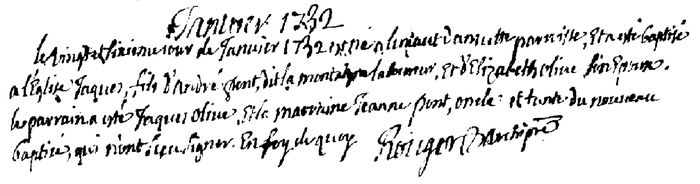 Janvier 1732
le vingt et sixieme jour de Janvier 1732 est né a liquaut dans cette parroisse, Et a eté baptisé
a l'Eglise Jaques, fils d'André pont, dit la montagne laboureur, Et d'Elizabeth olive son Epouse.
le parrain a eté Jaques olive, Et la marraine Jeanne pont, oncle et tante du nouveau
baptisé, qui n'ont sceu signer. En foy de quoy Rouger